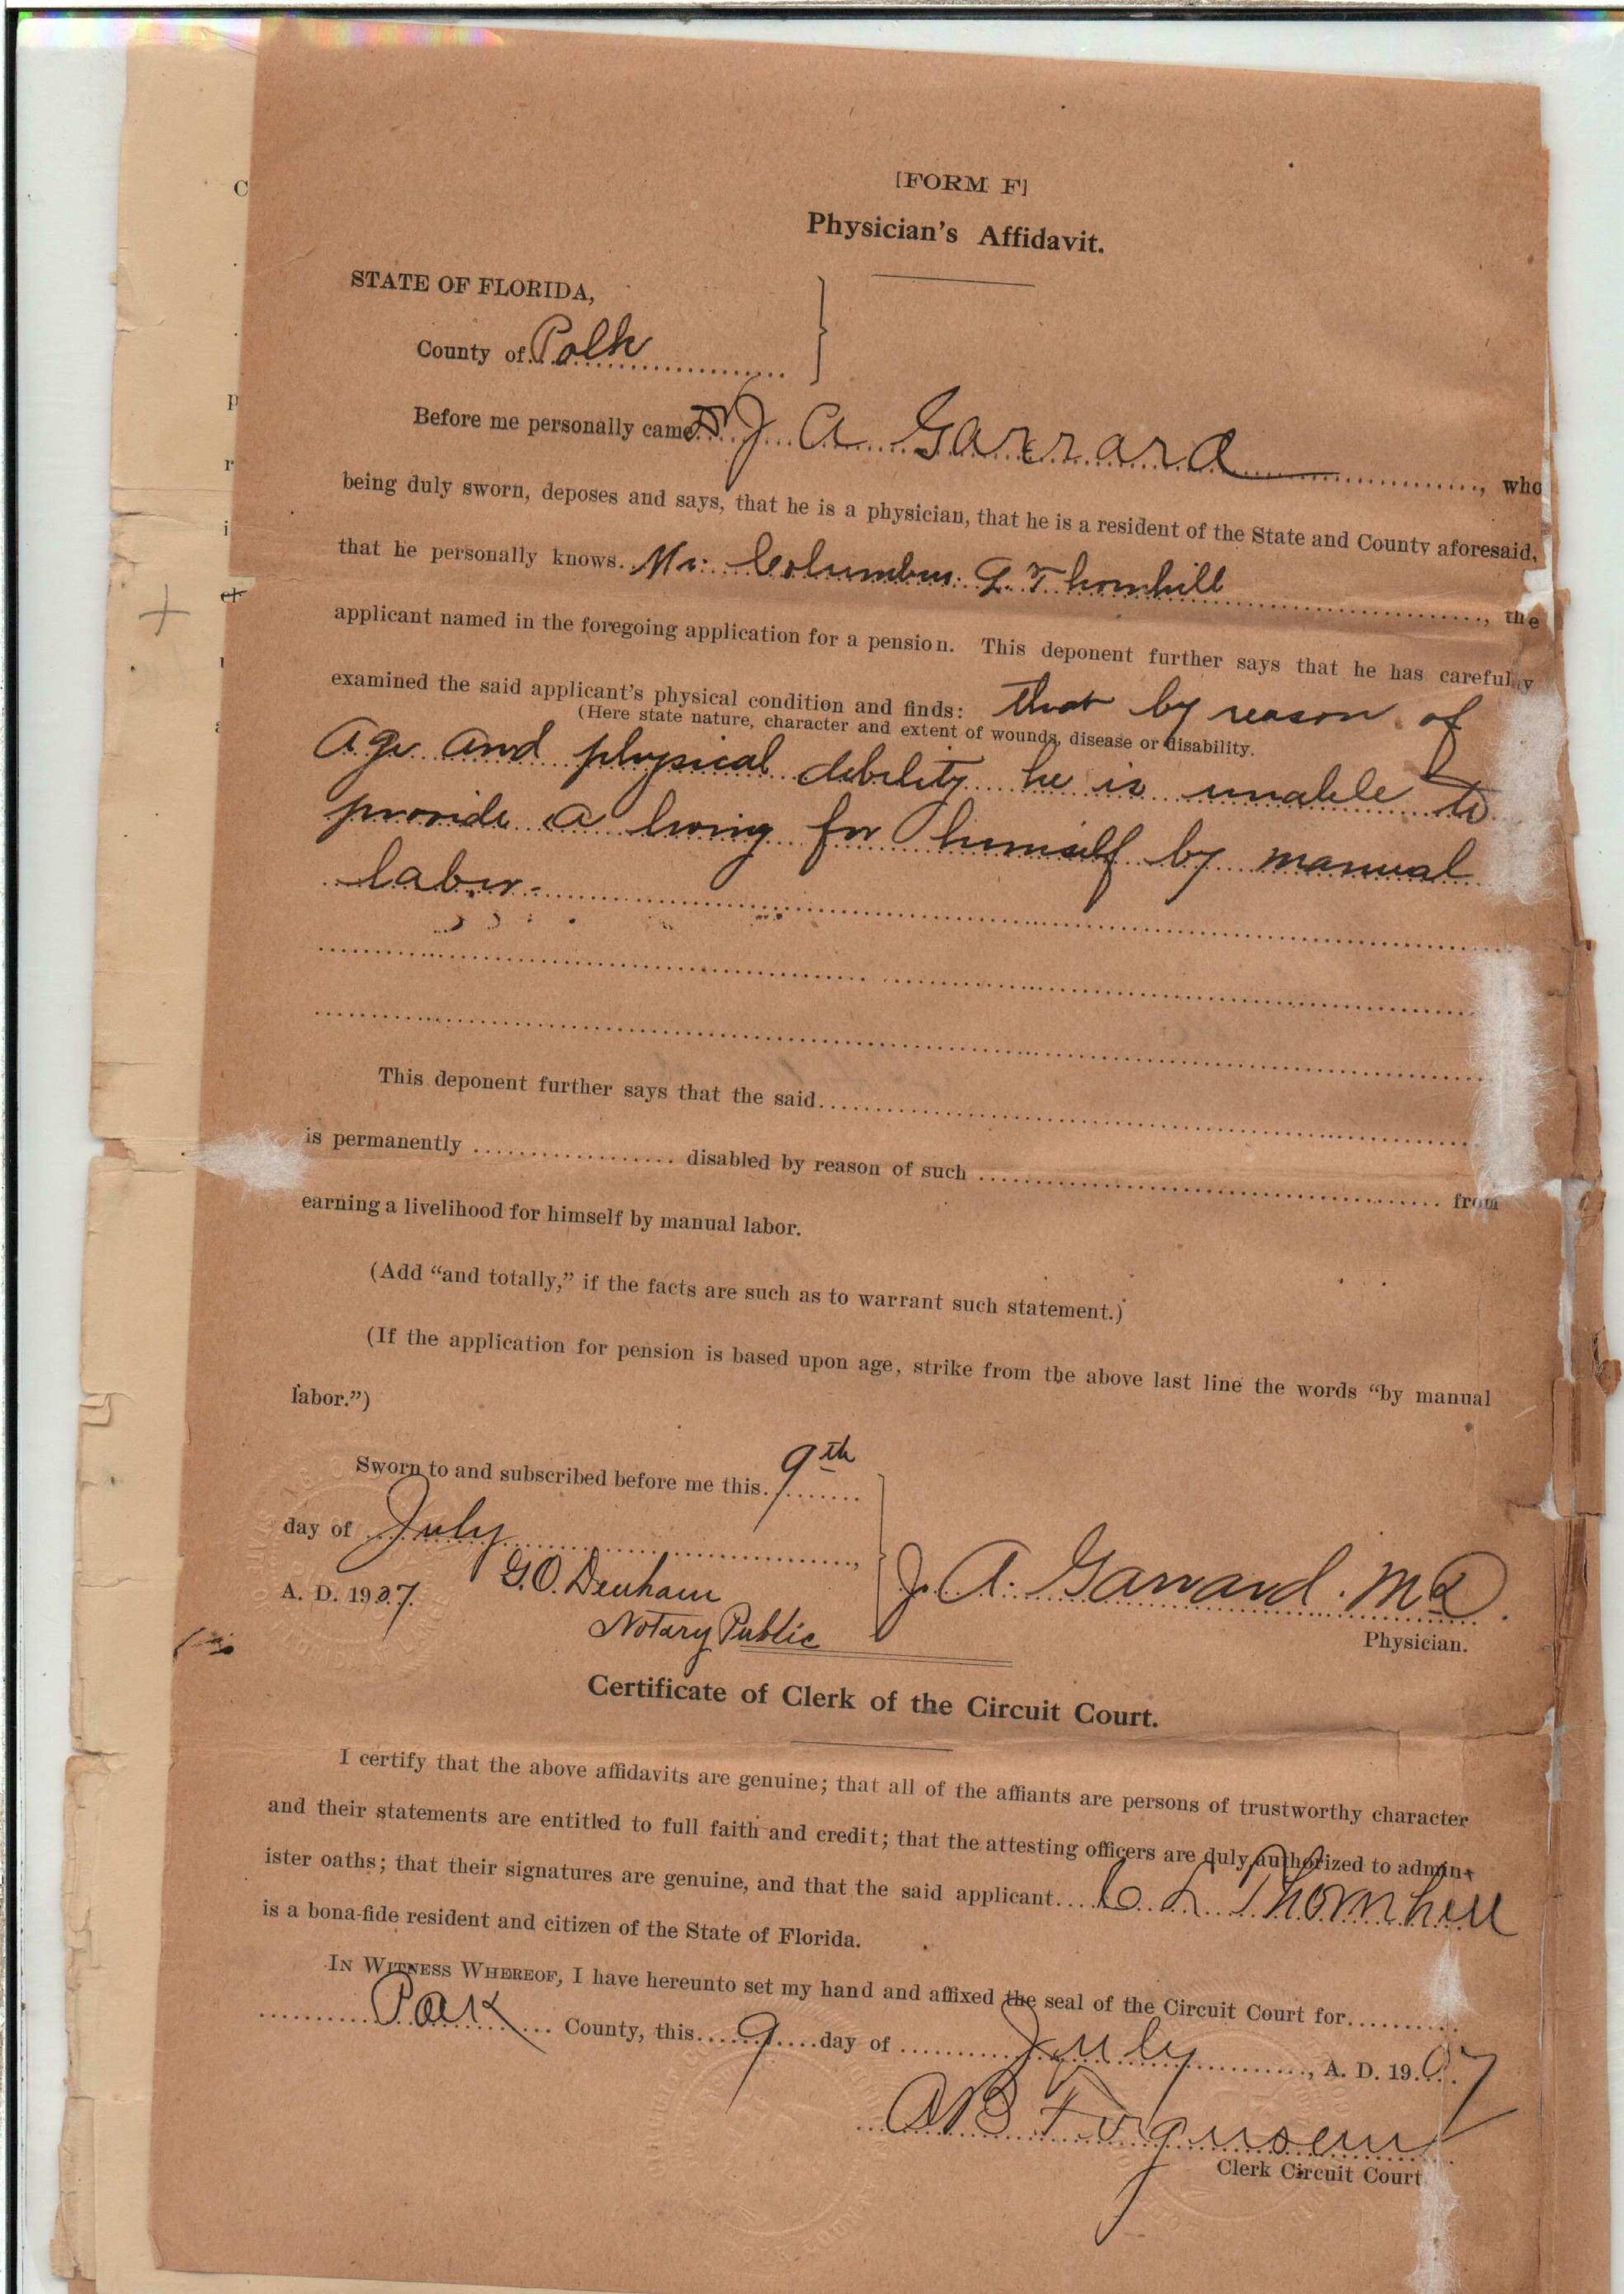 [FORM F]
Physician's Affidavit.
STATE OF FLORIDA,
County of Polk
Before me personally came Dr J A Garrard, who
being duly sworn, deposes and says, that he is a physician, that he is a resident of the State and County aforesaid,
that he personally knows. Mr. Columbus. L. Thornhill, the
applicant named in the foregoing application for a pension. This deponent further says that he has carefully
examined the said applicant's physical condition and finds: that by reason of
(Here state nature, character and extent of wounds, disease or disability.
Age and physical debility he is unable to
provide a living for himself by manual
labor.
This deponent further says that the said
is permanently disabled by reason of such from
earning a livelihood for himself by manual labor.
(Add “and totally,” if the facts are such as to warrant such statement.)
(If the application for pension is based upon age, strike from the above last line the words “by manual
labor.”)
Sworn to and subscribed before me this 9th
day of July,
A. D. 1907.
G. O. Denham
Notary Public
J. A. Garrard. MD.
Physician.
Certificate of Clerk of the Circuit Court.
I certify that the above affidavits are genuine; that all of the affiants are persons of trustworthy character
and their statements are entitled to full faith and credit; that the attesting officers are duly authorized to admin-
ister oaths; that their signatures are genuine, and that the said applicant C. L. Thornhill
is a bona-fide resident and citizen of the State of Florida.
IN WITNESS WHEREOF, I have hereunto set my hand and affixed the seal of the Circuit Court for
Polk County, this 9 day of July, A. D. 1907
A B Ferguson
Clerk Circuit Court